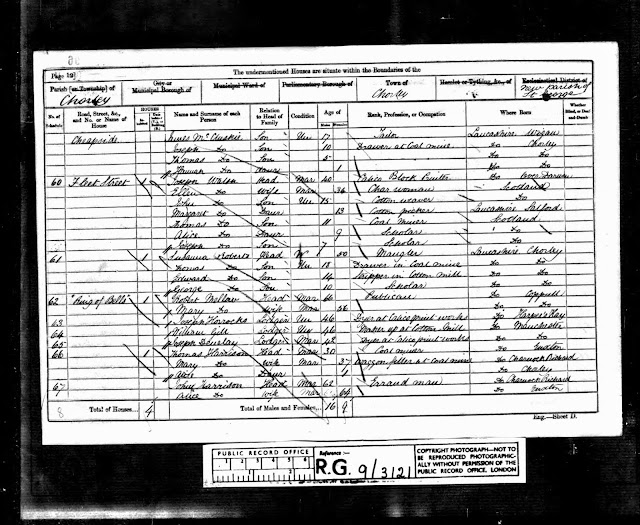 Page 19]
The undermentioned Houses are situate within the Boundaries of the
Parish [or Township] of
Chorley
City or Municipal Borough of
Municipal Ward of
Parliamentary Borough of
Town of
Chorley
Hamlet or Tything, &c., of
Ecclesiastical District of
New Parish of St George
No. of Schedule
Road, Street, &c., and No. or Name of House
HOUSES
Name and Surname of each Person
Relation to Head of Family
Condition
Age of
Males
Females
Rank, Profession, or Occupation
Where Born
Whether Blind, or Deaf-and-Dumb
Cheapside James McCluskie Son Un 17 Tailor Lancashire Wigan
Joseph Do Son 10 Drawer at Coal mine Do Chorley
Thomas Do Son 5 Do Do
Hannah Do Daur 1 Do Do
60 Fleet Street 1 Joseph Walsh Head Mar 40 Calico Block Printer Do Over Darwen
Ellen Do Wife Mar 36 Char woman Scotland
Do Son Un 15 Cotton weaver Do
Margaret Do Daur 13 Cotton Lancashire Salford
Thomas Do Son 11 Coal miner Scotland
Alice Do Daur 9 Scholar Do
Joseph Do Son 7 Scholar Do
61 1 Susanna Roberts Head W 50 Mangler Lancashire Chorley
Thomas Do Son Un 18 Drawer in Coal mine Do Do
Edward Do Son 14 Stripper in Cotton mill Do Do
George Do Son 10 Scholar Do Do
62 "Ring of Bells" 1 Robert Mellow Head Mar 64 Publican Do Coppull
Mary Do Wife Mar 56 Do Do
63 Joseph Horrocks Lodger Un 46 Dyer at Calico print works Do Harpurhey
64 William Gill Lodger Un 46 Maker up at Cotton Mill Do Manchester
65 Joseph Lodger Mar 42 Dyer at Calico print works Do Do
66 1 Thomas Harrison Head Mar 30 Coal miner Do Euxton
Mary Do Wife Mar 37 Waggon filler at Coal mine Do Charnock Richard
Do Daur 1 Do Chorley
67 John Harrison Head Mar 62 Farand man Do Charnock Richard
Alice Do Wife Mar 64 Do Euxton
8 Total of Houses... 4 Total of Males and Females... 16 9
Eng.—Sheet D.
PUBLIC RECORD OFFICE
1 2 3 4 5 6
Reference :-
R.G. 9/3121
COPYRIGHT PHOTOGRAPH—NOT TO BE REPRODUCED PHOTOGRAPHICALLY WITHOUT PERMISSION OF THE PUBLIC RECORD OFFICE, LONDON